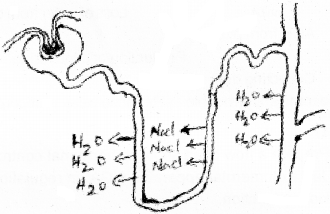 H₂O
H₂O
H₂O
Nacl
Nacl
Nacl
H₂O
H₂O
H₂O